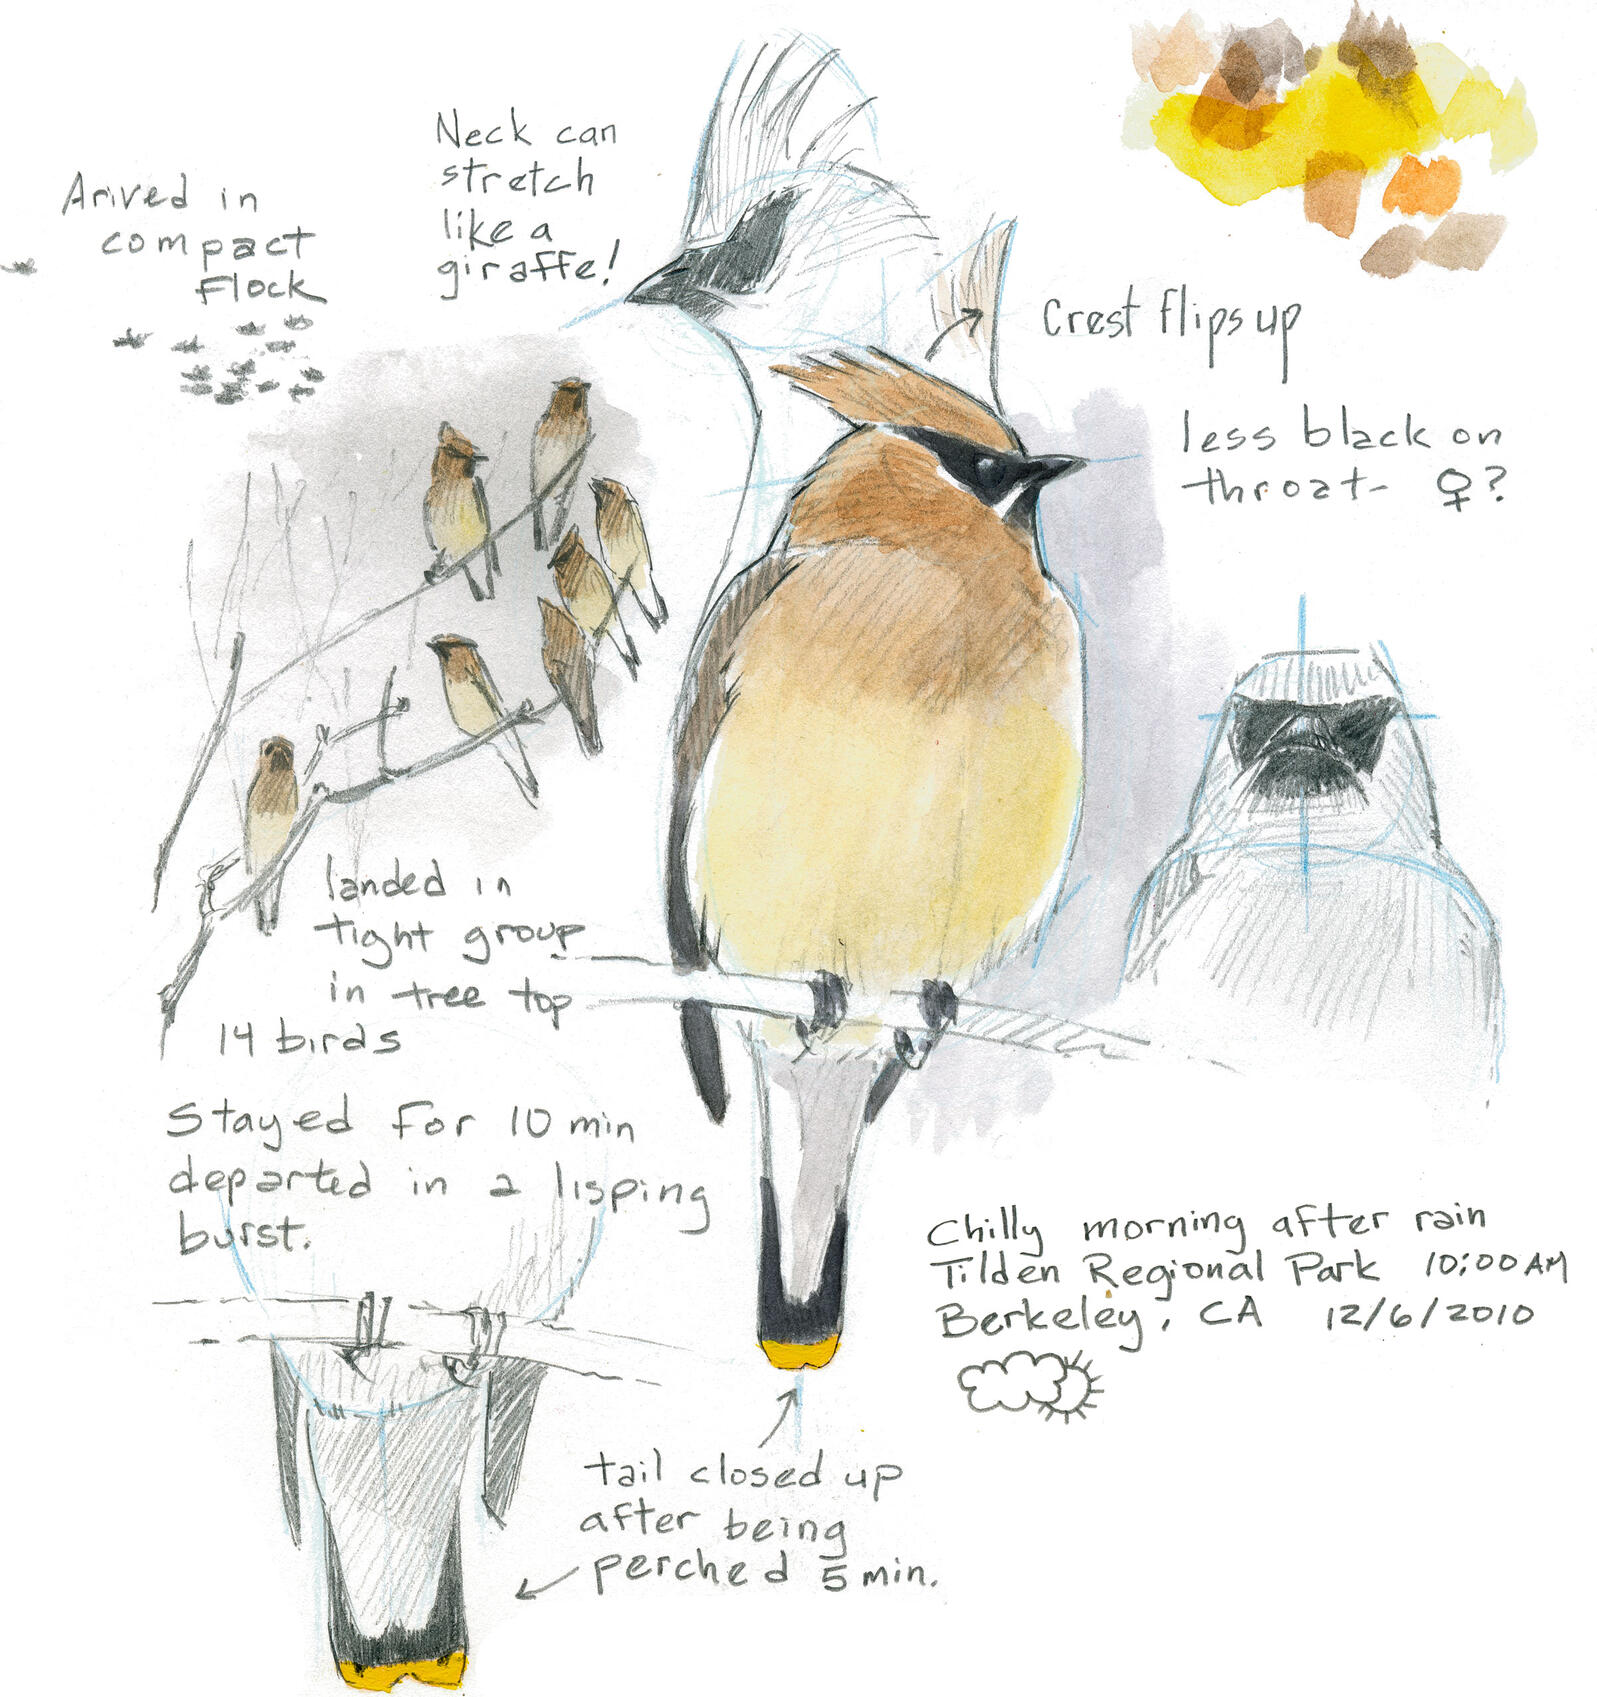 Arived in
compact
flock
Neck can
stretch
like a
giraffe!
Crest flips up
less black on
throat- ♀?
landed in
tight group
in tree top
14 birds
Stayed for 10 min
departed in a lisping
burst.
Chilly morning after rain
Tilden Regional Park 10:00 AM
Berkeley, CA 12/6/2010
tail closed up
after being
perched 5 min.